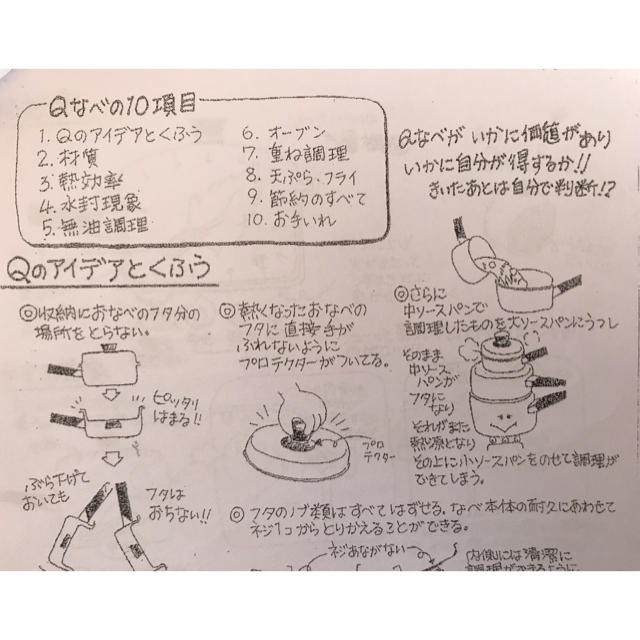 Qなべの10項目
1. Qのアイデアとくふう
2. 材質
3. 熱効率
4. 水封現象
5. 無油調理
6. オーブン
7. 重ね調理
8. 天ぷら、フライ
9. 節約のすべて
10. お手いれ
Qなべが いかに価値があり
いかに自分が得するか!!
きいたあとは自分で判断!?
Qのアイデアとくふう
◎収納におなべのフタ分の
場所をとらない。
ピッタリ
はまる!!
ぶら下げて
おいても
フタは
おちない!!
◎熱くなったおなべの
フタに直接手が
ふれないように
プロテクターがついてる。
プロ
テクター
◎さらに
中ソースパンで
調理したものを大ソースパンにうつし
そのまま
中ソース
パンが
フタに
なり
それがまた
熱源となり
その上に小ソースパンをのせて調理が
できてしまう。
◎フタのノブ類はすべてはずせる。なべ本体の耐久にあわせて
ネジ1コからとりかえることができる。
ネジあながない
内側には清潔に
調理ができるように